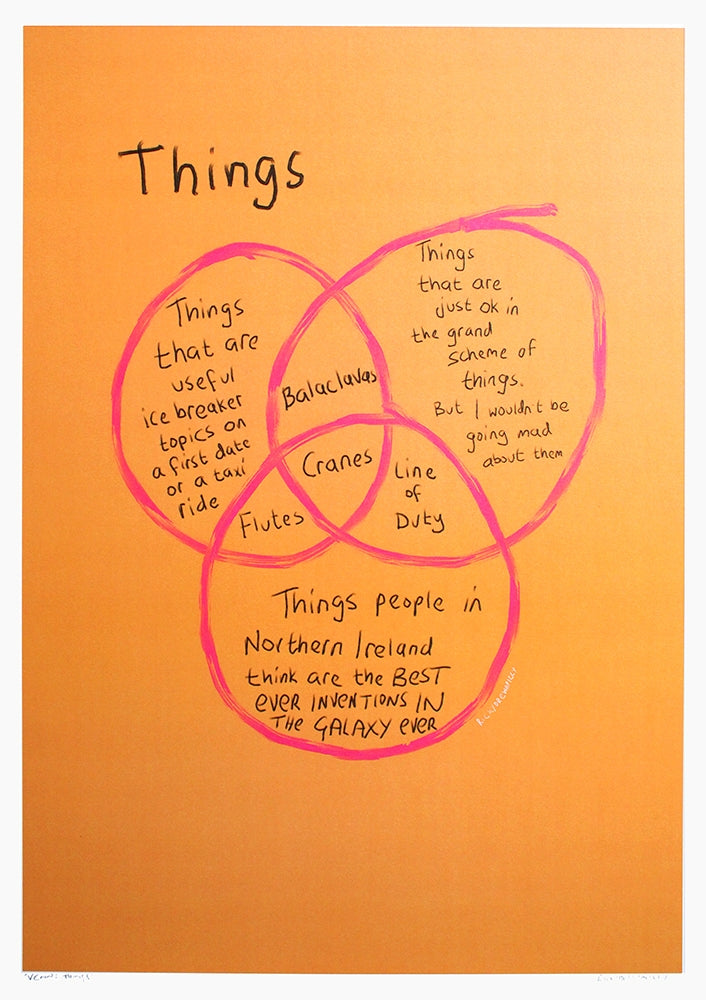 Things
Things
that are
useful
ice breaker
topics on
a first date
or a taxi
ride
Things
that are
just ok in
the grand
scheme of
things.
But I wouldn't be
going mad
about them
Balaclavas
Cranes
Line
of
Duty
Flutes
Things people in
Northern Ireland
think are the BEST
EVER INVENTIONS IN
THE GALAXY EVER